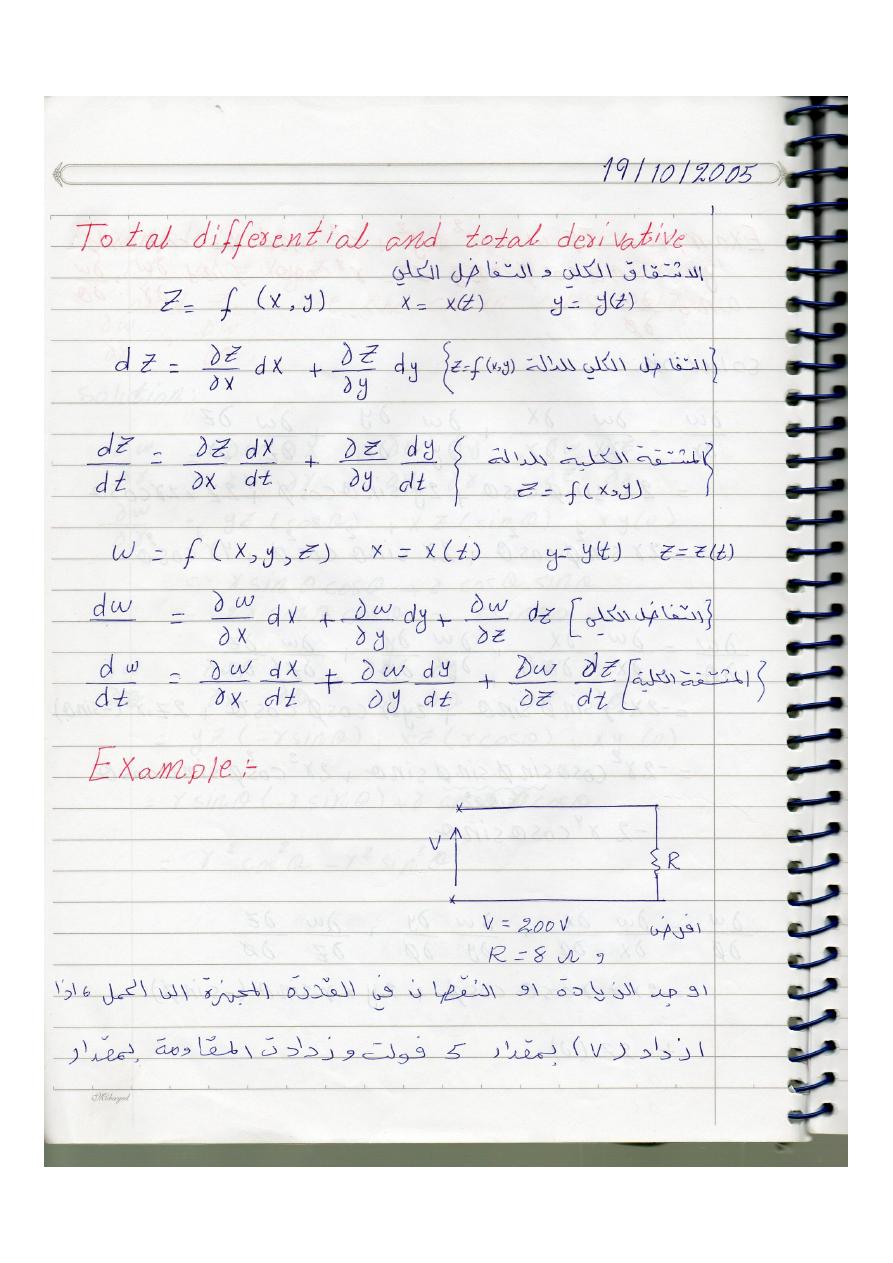 19/10/2005
Total differential and total derivative
الاشتقاق الكلي و التفاضل الكلي
Z = f (x,y) x = x(t) y = y(t)
dZ = ∂Z/∂x dx + ∂Z/∂y dy {التفاضل الكلي للدالة Z=f(x,y)}
dZ/dt = ∂Z/∂x dx/dt + ∂Z/∂y dy/dt {المشتقة الكلية للدالة
Z = f(x,y)}
w = f (x,y,z) x = x(t) y = y(t) z = z(t)
dw = ∂w/∂x dx + ∂w/∂y dy + ∂w/∂z dz [التفاضل الكلي}
dw/dt = ∂w/∂x dx/dt + ∂w/∂y dy/dt + ∂w/∂z dz/dt [المشتقة الكلية}
Example:-
V
R
افرض V = 200V
و R = 8 Ω
اوجد الزيادة او النقصان في القدرة المجهزة الى الحمل، اذا
ازداد (V) بمقدار 5 فولت وزدادت المقاومة بمقدار